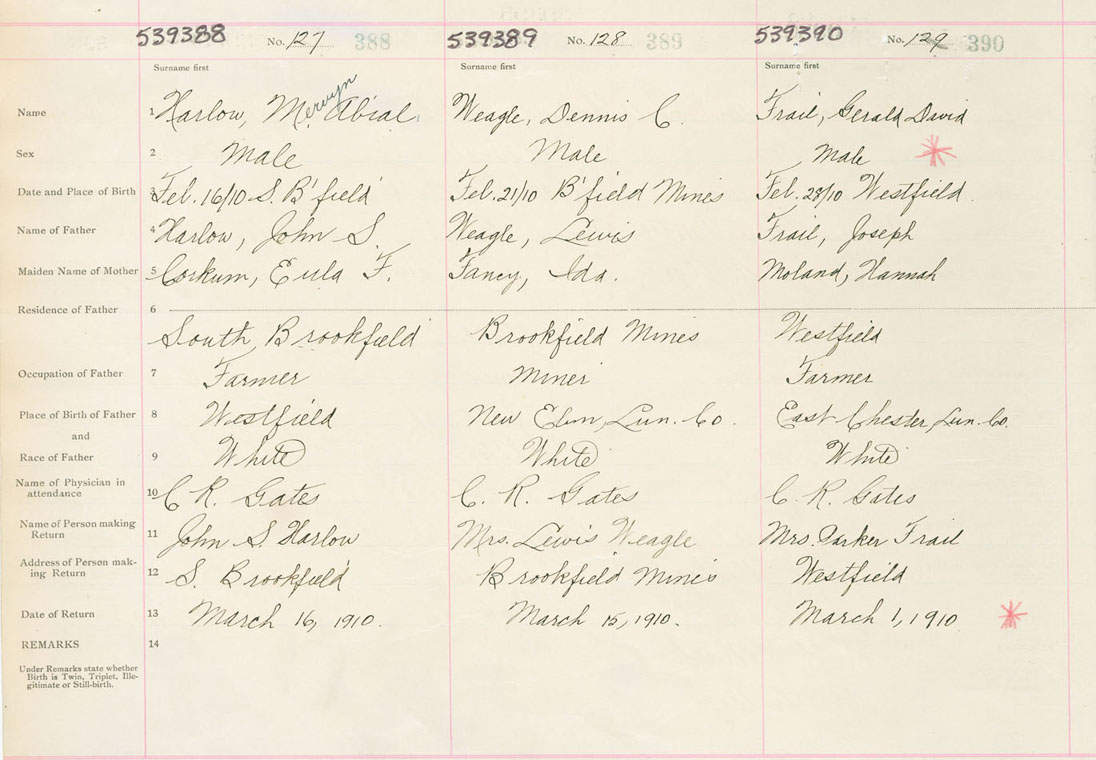 539388 No. 127 388 539389 No. 128 389 539390 No. 129 390
Surname first Surname first Surname first
Name 1 Harlow, Mervyn Abial Weagle, Dennis C. Frail, Gerald David
Sex 2 Male Male Male
Date and Place of Birth 3 Feb. 16/10 S. B'field Feb. 21/10 B'field Mines Feb. 28/10 Westfield
Name of Father 4 Harlow, John S. Weagle, Lewis Frail, Joseph
Maiden Name of Mother 5 Corkum, Eula F. Fancy, Ida. Moland, Hannah
Residence of Father 6
South Brookfield Brookfield Mines Westfield
Occupation of Father 7 Farmer Miner Farmer
Place of Birth of Father 8 Westfield New Elm, Lun. Co. East Chester Lun. Co.
and
Race of Father 9 White White White
Name of Physician in
attendance 10 C R. Gates C. R. Gates C. R. Gates
Name of Person making
Return 11 John S. Harlow Mrs. Lewis Weagle Mrs. Parker Frail
Address of Person mak-
ing Return 12 S. Brookfield Brookfield Mines Westfield
Date of Return 13 March 16, 1910. March 15, 1910. March 1, 1910
REMARKS 14
Under Remarks state whether
Birth is Twin, Triplet, Ille-
gitimate or Still-birth.